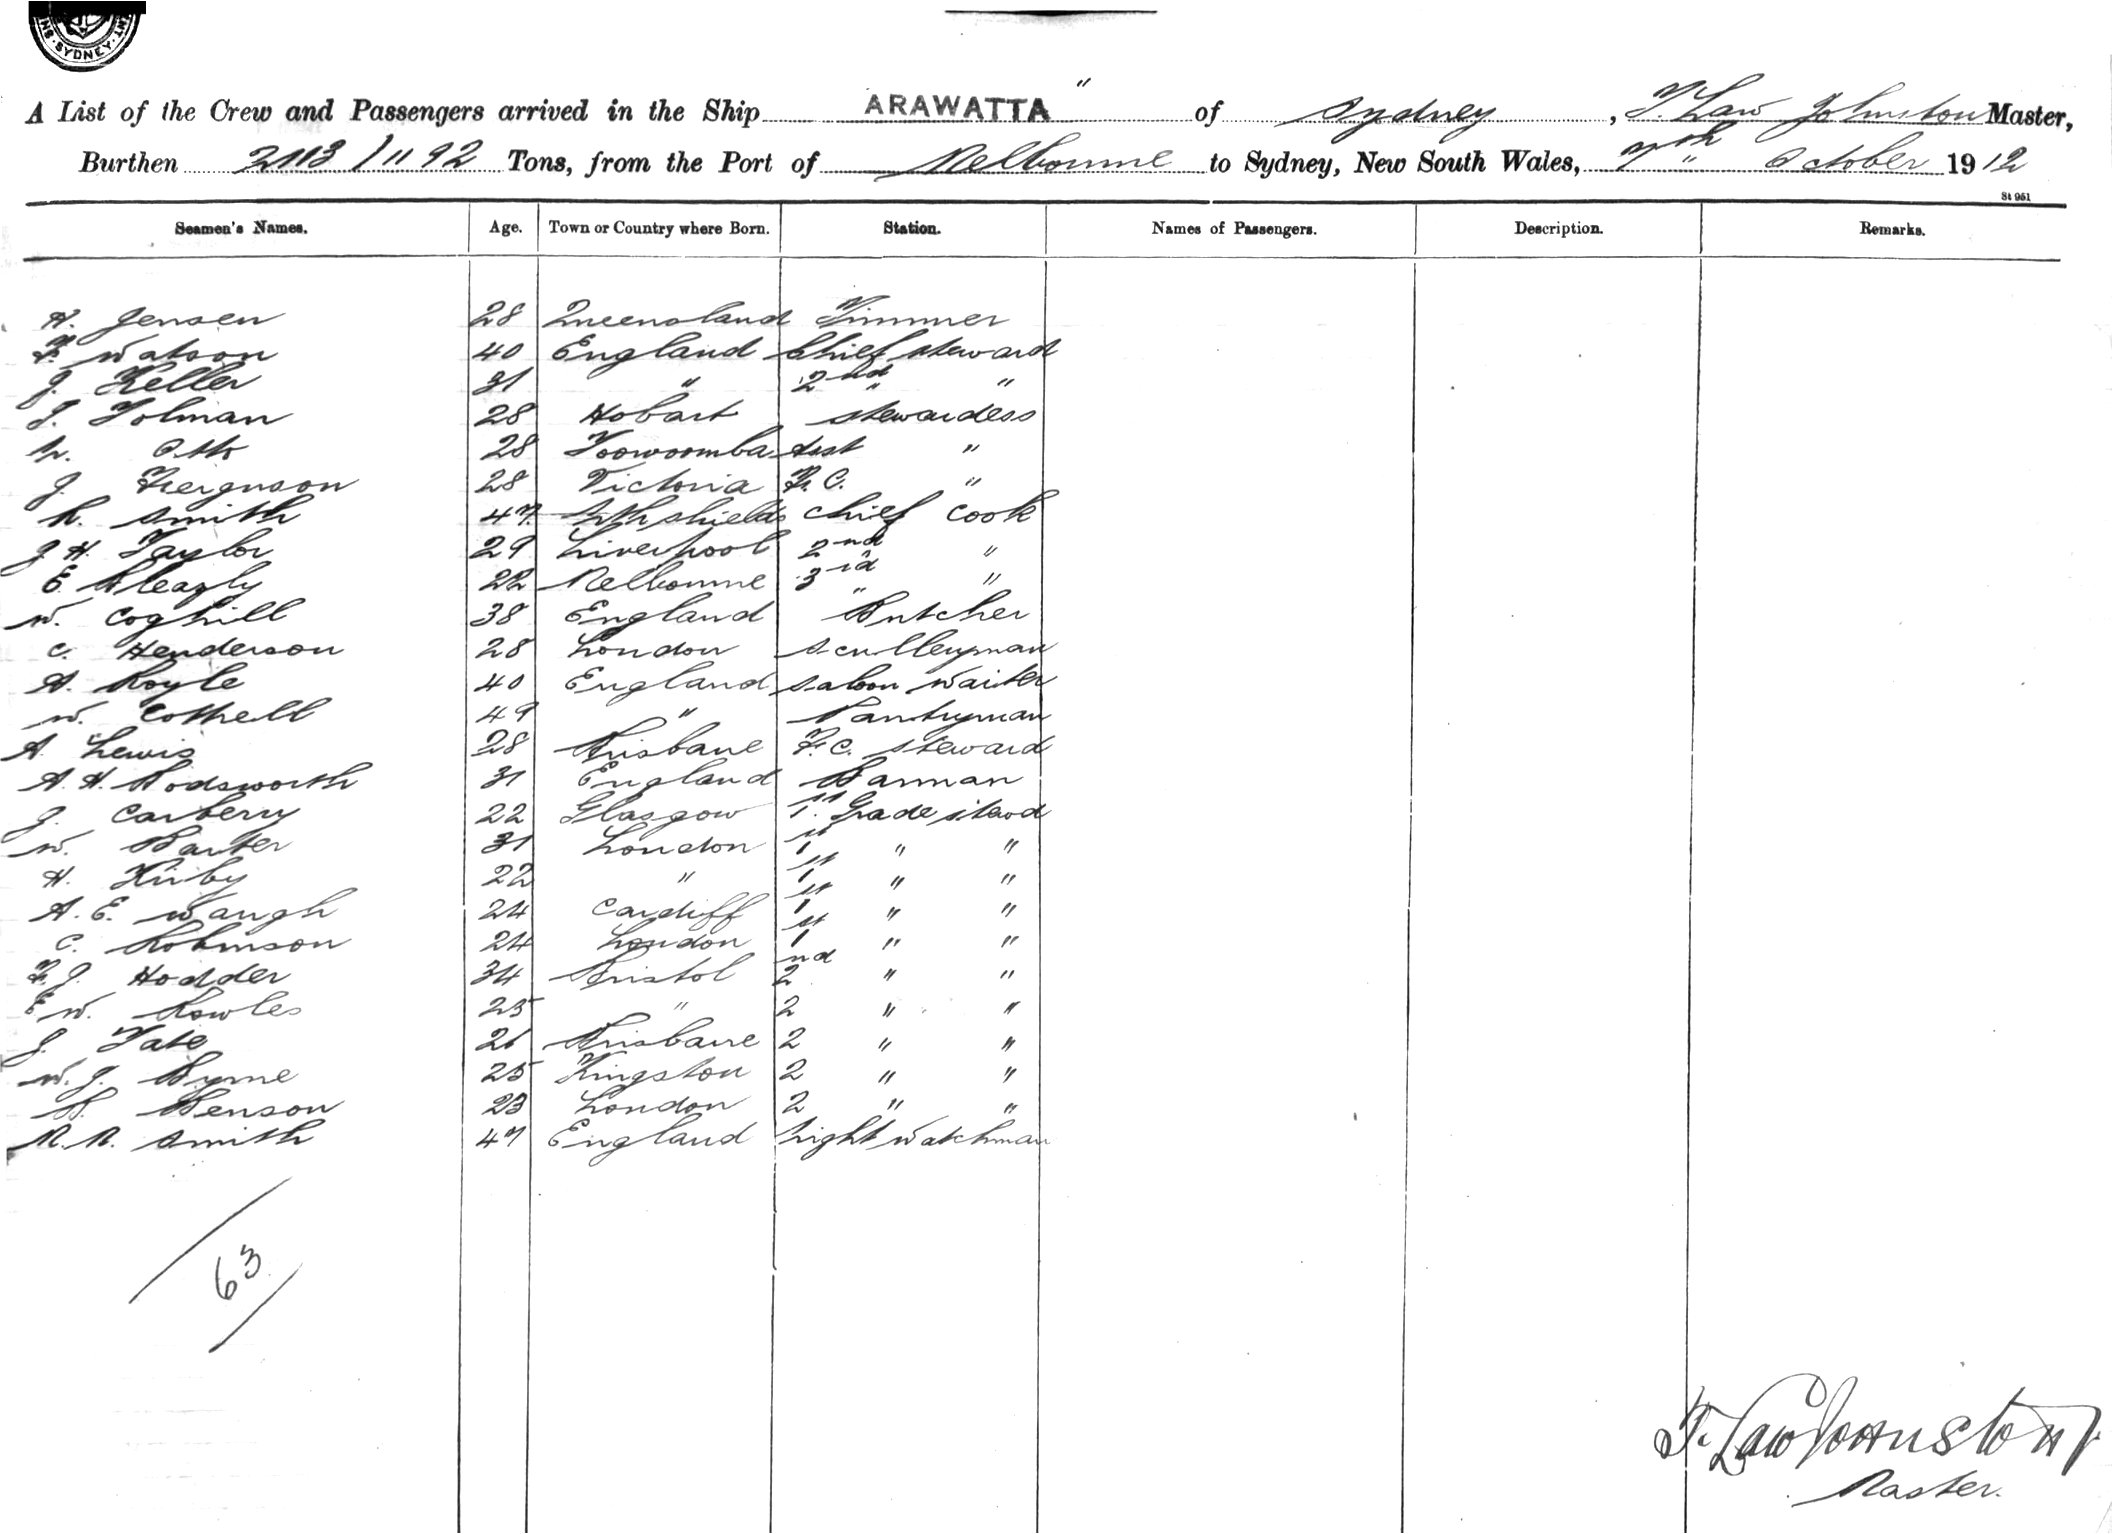 SYDNEY
A List of the Crew and Passengers arrived in the Ship ARAWATTA " of Sydney, T. Law Johnston Master,
Burthen 2113/1192 Tons, from the Port of Melbourne to Sydney, New South Wales, 7th October 1912
St 951
Seamen's Names. Age. Town or Country where Born. Station. Names of Passengers. Description. Remarks.
H. Jensen 28 Queensland Trimmer
F. Watson 40 England Chief Steward
J. Keller 31 " 2nd "
J. Tolman 28 Hobart Stewardess
N. Otto 28 Toowoomba Asst "
J. Ferguson 28 Victoria F.C. "
R. Smith 47 Sth Shields Chief Cook
J H. Taylor 29 Liverpool 2nd "
E. 22 Melbourne 3rd "
W. Coghill 38 England Butcher
C. Henderson 28 London Sculleryman
A. Royle 40 England Saloon Waiter
W. Cottrell 49 " Pantryman
A. Lewis 28 Brisbane F.C. Steward
A. H. Bodsworth 31 England Barman
J. Carberry 22 Glasgow 1st Grade Steward
W. Baxter 31 London 1st " "
H. Kirby 22 " 1st " "
A. E. Waugh 24 Cardiff 1st " "
C. Robinson 24 London 1st " "
F. J. Hodder 34 Bristol 2nd " "
E W. Rowles 25 " 2 " "
J. Tate 26 Brisbane 2 " "
W. J. Byrne 25 Kingston 2 " "
H. Benson 23 London 2 " "
M. M. Smith 47 England Night Watchman
63
T. Law Johnston
Master.